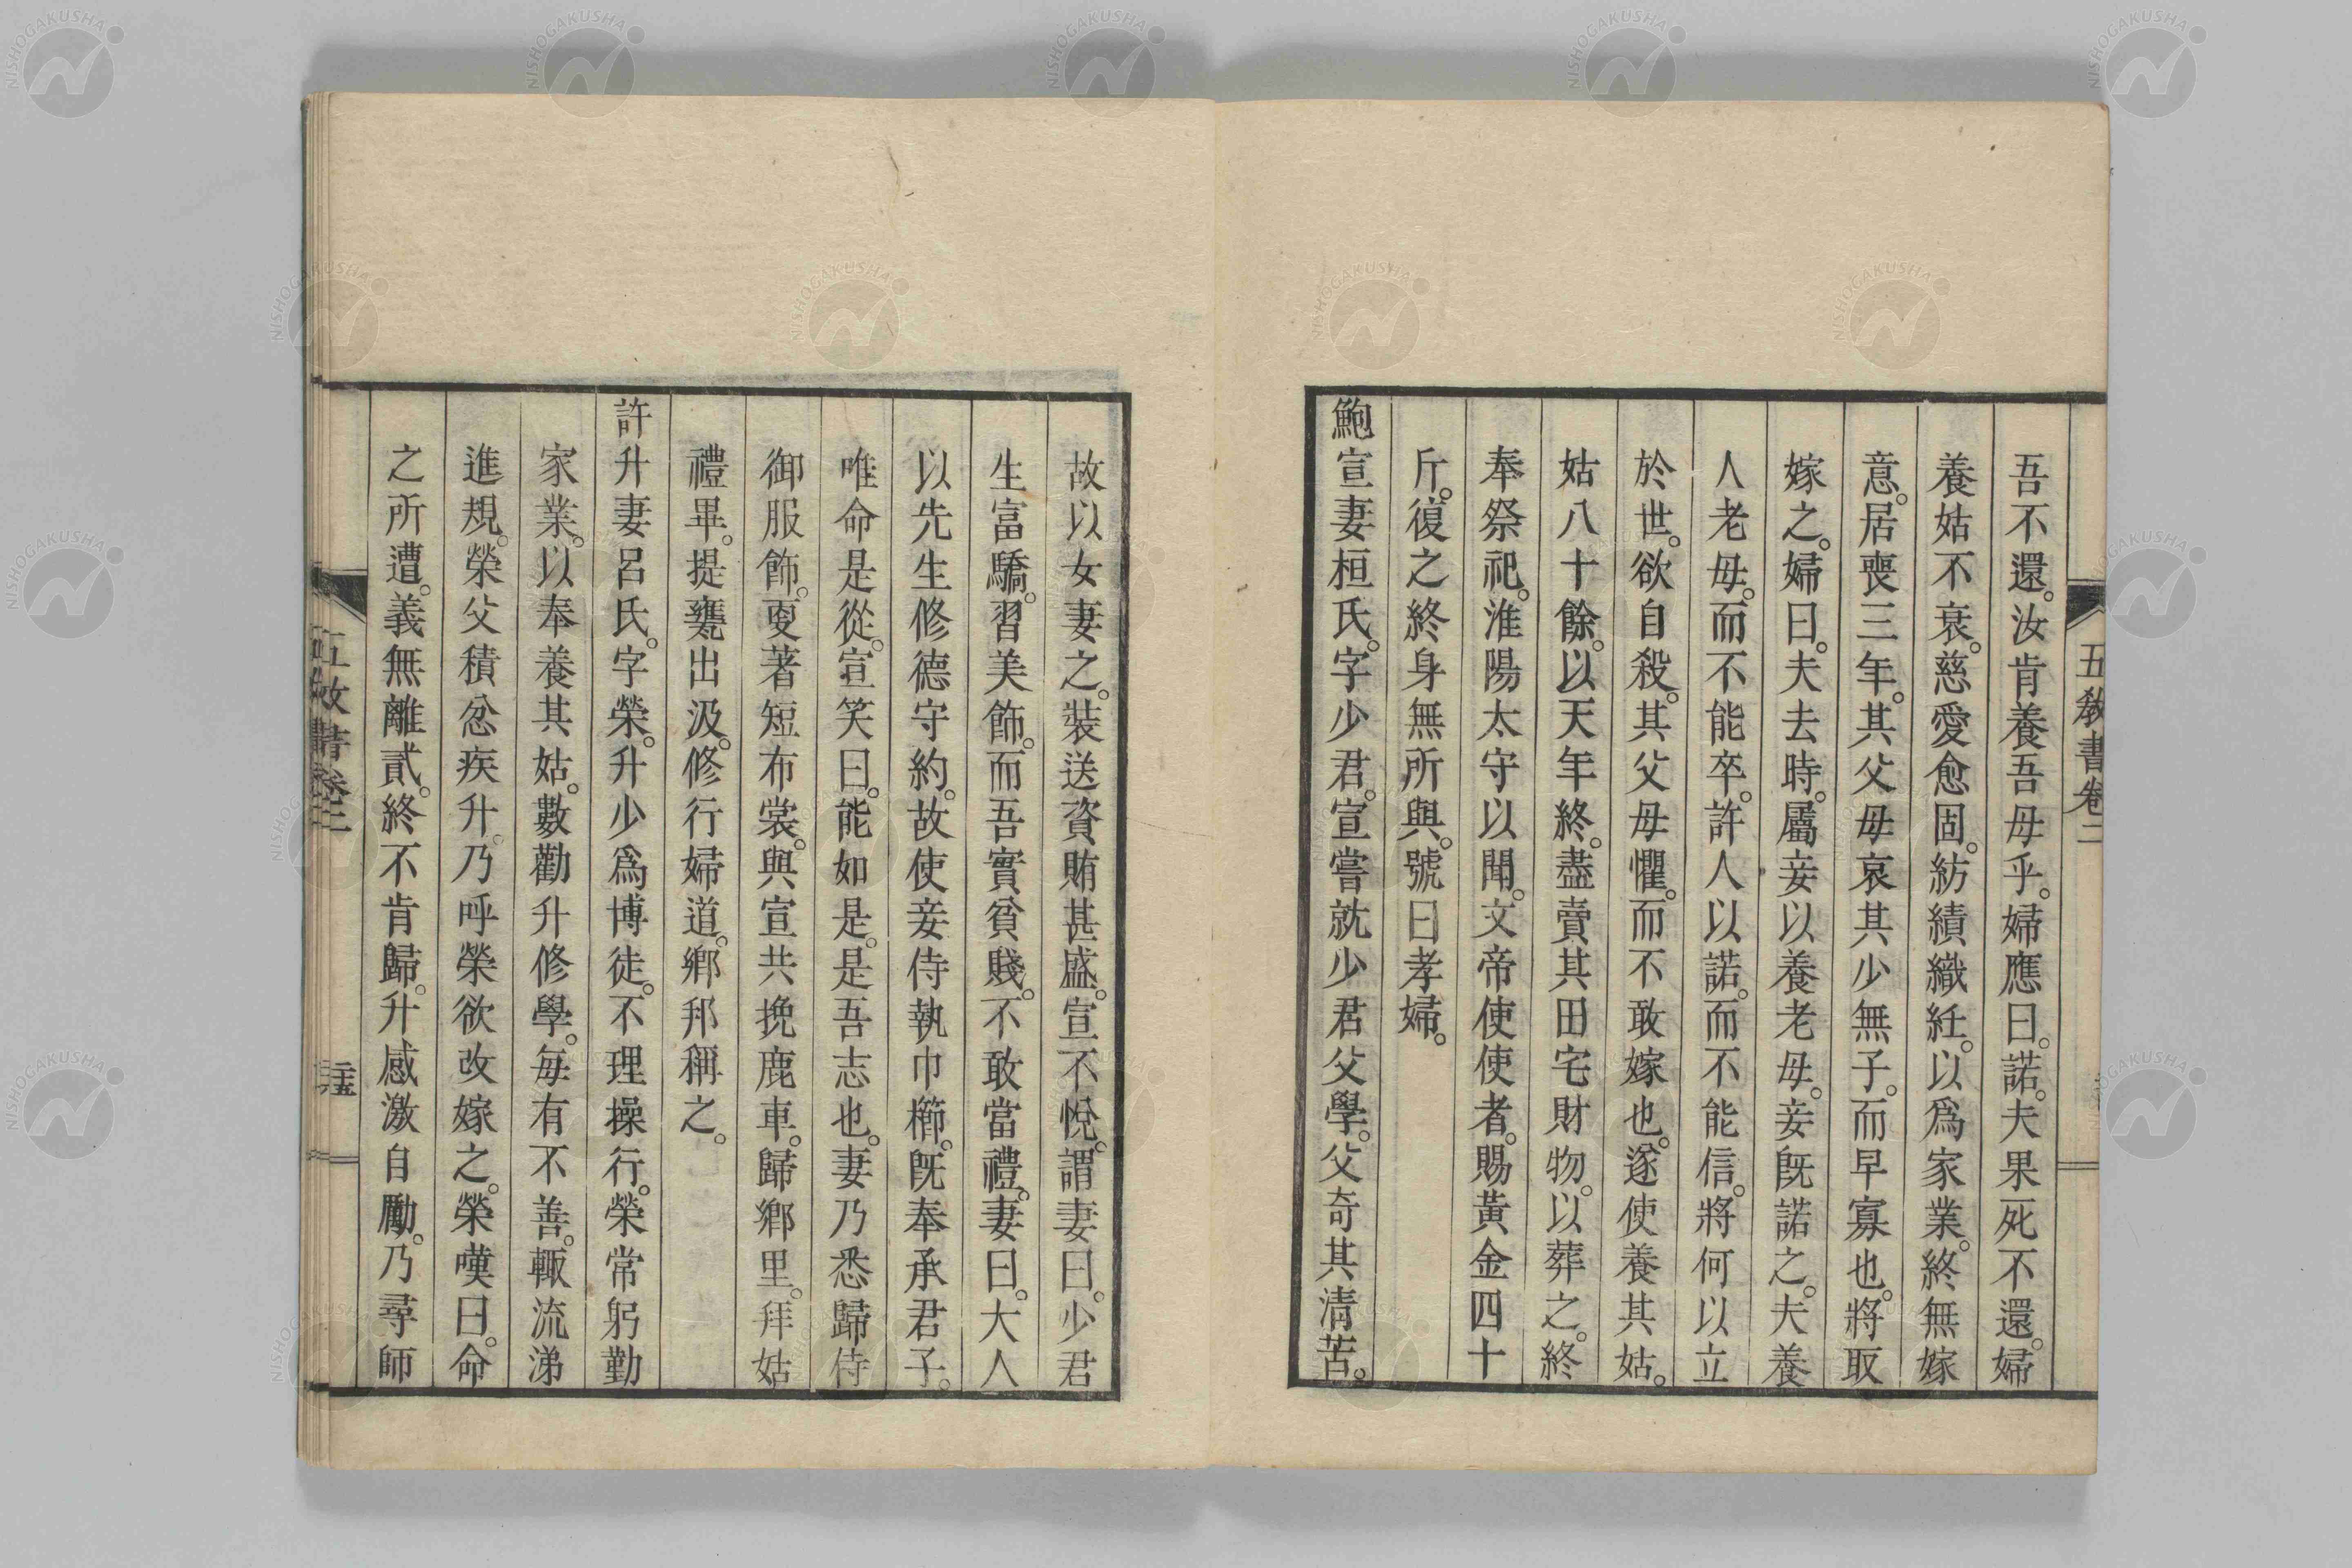 五敎書卷二
吾不還。汝肯養吾母乎。婦應曰。諾。夫果死不還。婦
養姑不衰。慈愛愈固。紡績織紝。以爲家業。終無嫁
意。居喪三年。其父母哀其少無子。而早寡也。將取
嫁之。婦曰。夫去時。屬妾以養老母。妾既諾之。夫養
人老母。而不能卒。許人以諾。而不能信。將何以立
於世。欲自殺。其父母懼。而不敢嫁也。遂使養其姑。
姑八十餘。以天年終。盡賣其田宅財物。以葬之。終
奉祭祀。淮陽太守以聞。文帝使使者。賜黃金四十
斤。復之終身無所與。號曰孝婦。
鮑宣妻桓氏。字少君。宣嘗就少君父學。父奇其清苦。
故以女妻之。裝送資賄甚盛。宣不悅。謂妻曰。少君
生富驕。習美飾。而吾實貧賤。不敢當禮。妻曰。大人
以先生修德守約。故使妾侍執巾櫛。既奉承君子。
唯命是從。宣笑曰。能如是。是吾志也。妻乃悉歸侍
御服飾。更著短布裳。與宣共挽鹿車。歸鄉里。拜姑
禮畢。提甕出汲。修行婦道。鄉邦稱之。
許升妻呂氏。字榮。升少爲博徒。不理操行。榮常躬勤
家業。以奉養其姑。數勸升修學。每有不善。輒流涕
進規。榮父積忿疾升。乃呼榮欲改嫁之。榮嘆曰。命
之所遭。義無離貳。終不肯歸。升感激自勵。乃尋師
五敎書卷二
NISHOGAKUSHA